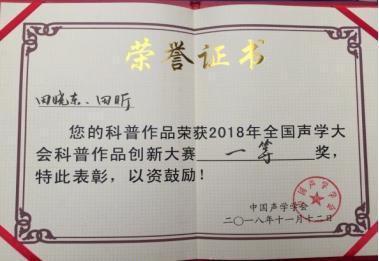 荣誉证书
田晓东、田昕
您的科普作品荣获2018年全国声学大
会科普作品创新大赛一等奖，
特此表彰，以资鼓励！
中国声学学会
二〇一八年十一月十二日